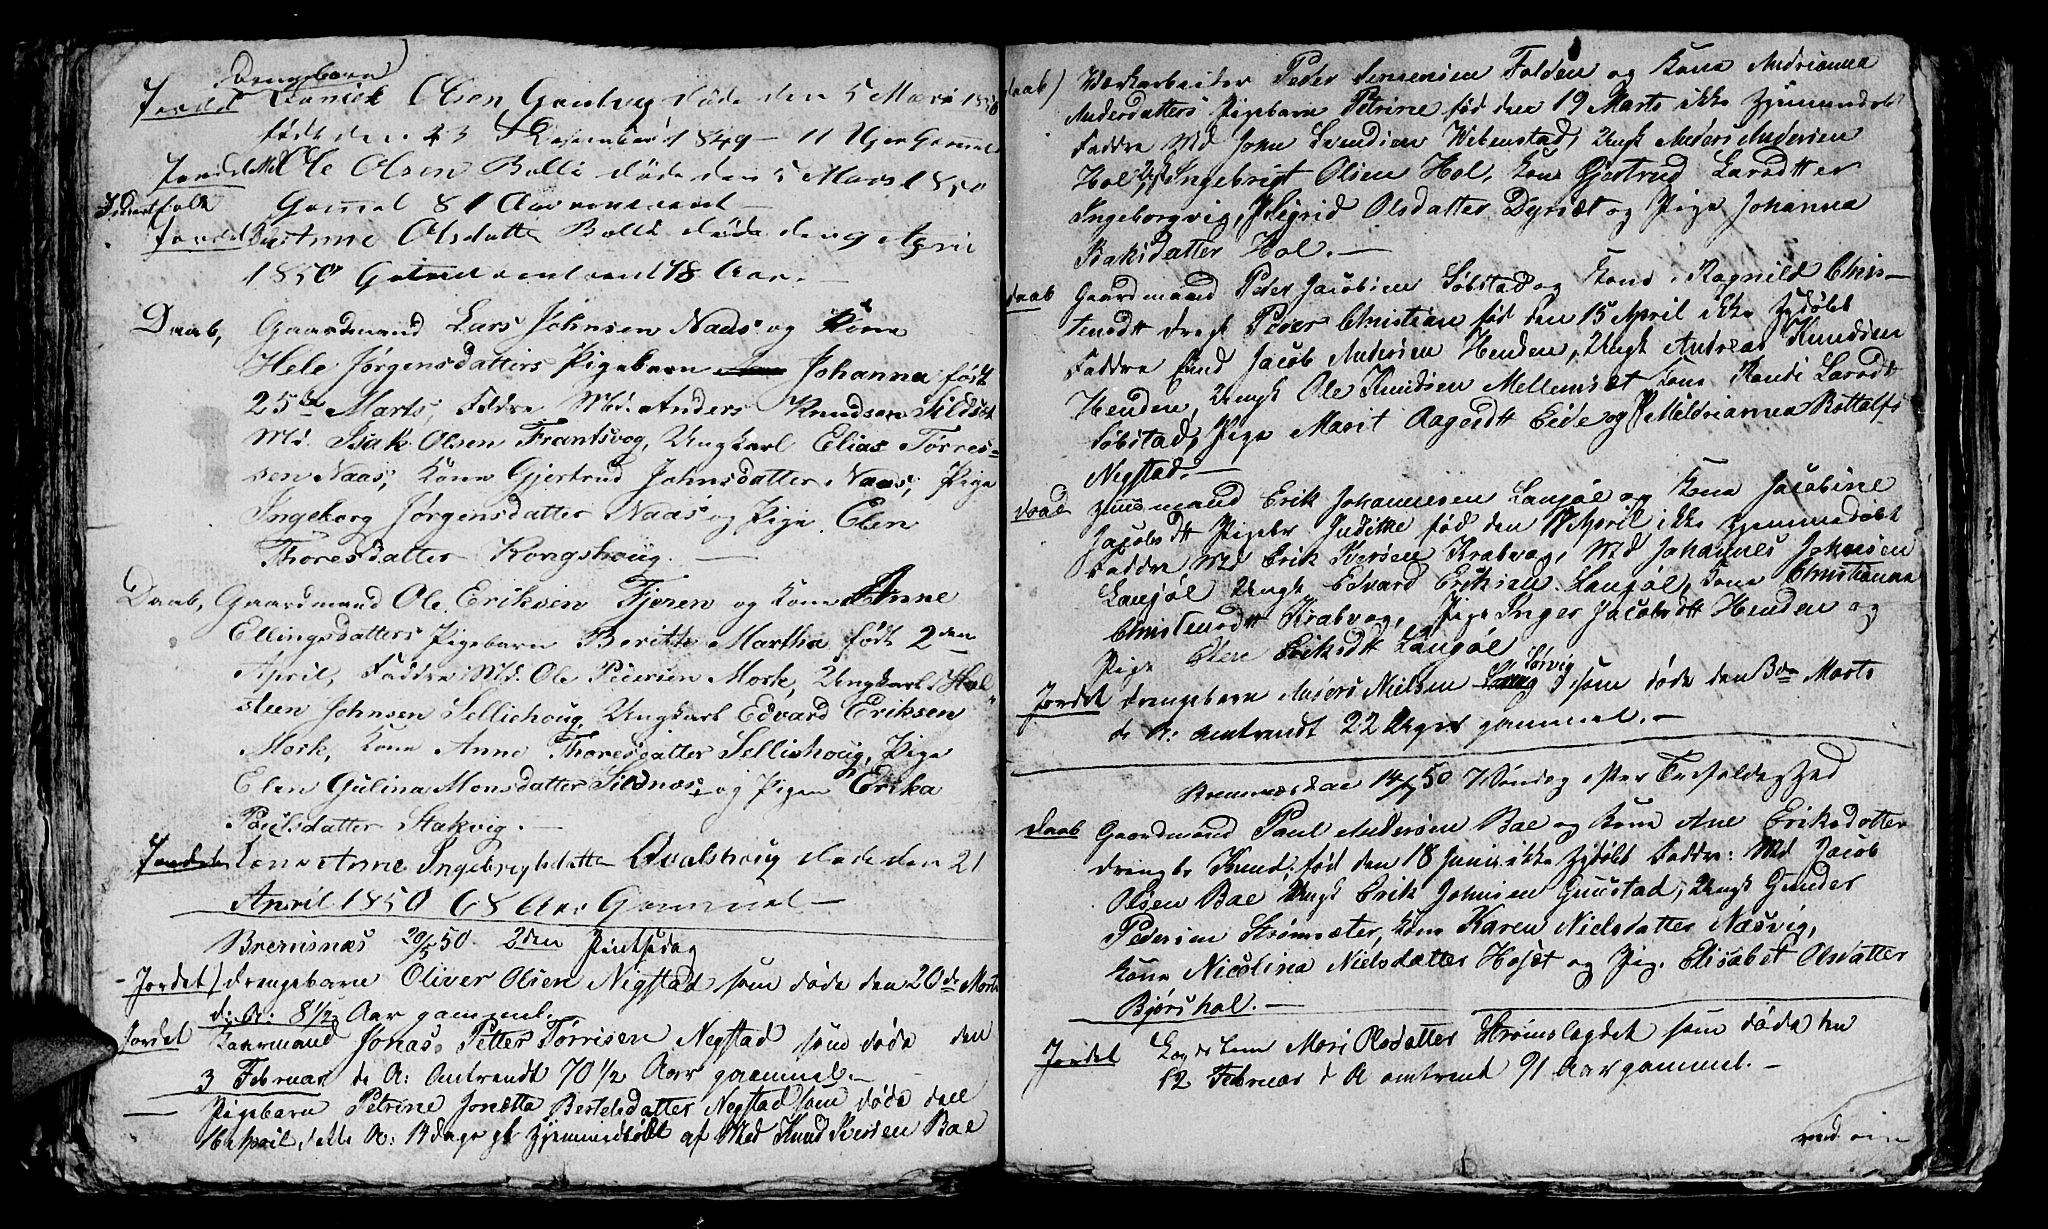 Drengebarn
Jordet Daniel Olsen Gautvog døde den 5 Mars 1850
født den 23 December 1849 - 11 Uger Gammel
Jordet Md Ole Olsen Bolli døde den 5 Mars 1850
Gamel 81 Aar omtrent
Jordet Anne Olsdatter Bolli døde den 9 April
1850 Gamel omtrent 78 Aar.
Daab, Gaardmand Lars Johnsen Naas og Kone
Hele Jørgensdatters Pigebarn Johanna født
25de Marts, Fadre Md. Anders Knudsen Sildset
Md. Isak Olsen Frantsvog, Ungkarl Elias Tørres=
sen Naas, Kone Gjertrud Johnsdatter Naas, Pige
Ingeborg Jørgensdatter Naas og Pige Elen
Thoresdatter Kongshoug. —
Daab, Gaardmand Ole Eriksen Fjeren og Kone Anne
Ellingsdatters Pigebarn Beritte Martha født 2den
April, Faddre Md. Ole Pedersen Mork, Ungkarl Hal=
steen Johnsen Sellishoug, Ungkarl Edvard Eriksen
Mork, Kone Anne Thoresdatter Sellishoug, Pige
Elen Gulina Monsdatter Sildnes og Pigen Erika
Poulsdatter Stakvig. —
Jordet Kone Anne Ingebrigtsdatter Qvalshoug døde den 21
April 1850 68 Aar Gammel —
Bremsnæs 20/5 50 2den Pintsedag
Jordet) Drengebarn Oliver Olsen Nigstad som døde den 20de Marts
d: A: 8 1/2 Aar gammel.
Jordet Kaarmand Jonas Petter Tørrisen Negstad som døde den
3 Februar de A: omtrendt 70 1/2 Aar gammel. —
— Pigebarn Petrine Jonetta Bertelsdatter Negstad som døde den
16 April dette A: 14 dage gl hjemmedøbt af Md Knud Iversen Bae
daab) Værkarbeiter Peder Jensensen Folden og Kone Andrianna
Andersdatters Pigebarn Petrine fød den 19 Marts ikke hjemmedøbt
Faddre Md John Svendsen Vebenstad, Ungk Anders Andersen
Hol, Ungk Ingebrigt Olsen Hol, Kone Gjertrud Larsdtter
Ingeborgvig, P Sigrid Olsdatter Dyrset og Pige Johanna
Isaksdatter Hol. —
daab Gaardmand Peder Jacobsen Søbstad og Kone Ragnild Chris-
tensdtt dregb Peder Christian fød den 15 April ikke hjdøbt
Faddre End Jacob Andersen Henden, Ungk Andreas Knudsen
Henden, Ungk Ole Knudsen Mellemset Kone Randi Larsdtt
Søbstad, Pige Marit Aagesdtt Eide og P Mildrianna Rottolfs
Negstad. —
daab Huusmand Erik Johannesen Langøl og Kone Jacobine
Jacobsdtt Pigebr Juditte fød den 17 April ikke hjemmedøbt
Faddre Md Erik Iversen Krabvog, Md Johannes Johnsen
Langøl Ungk Edvard Eriksen Langøl, Kone Christianna
Christensdtt Krabvog, Pige Inger Jacobsdtt Henden og
Pige Elen Eriksdtt Langøl
Sørvig
Jordet drengebarn Anders Nielsen som døde den 3de Marts
de A: omtrendt 22 Uger gammel. —
Bremnæs den 14/7 50 7 Søndag efter Trefoldighed
daab Gaardmand Paul Andersen Bae og Kone Ane Eriksdatter
drengbr Knud fød den 18 Juni ikke hjdøbt Faddre: Md Jacob
Olsen Bae Ungk Erik Johnsen Guustad, Ungk Gunder
Pedersen Strømsæter, Kone Karen Nielsdatter Næsvig,
Kone Nicolina Nielsdatter Hoset og Pig. Elisabet Olsdatter
Bjørshol. —
Jordet Mari Olsdatter Strømslegdet som døde den
12 Februar d A omtrent 91 Aar gammel. —